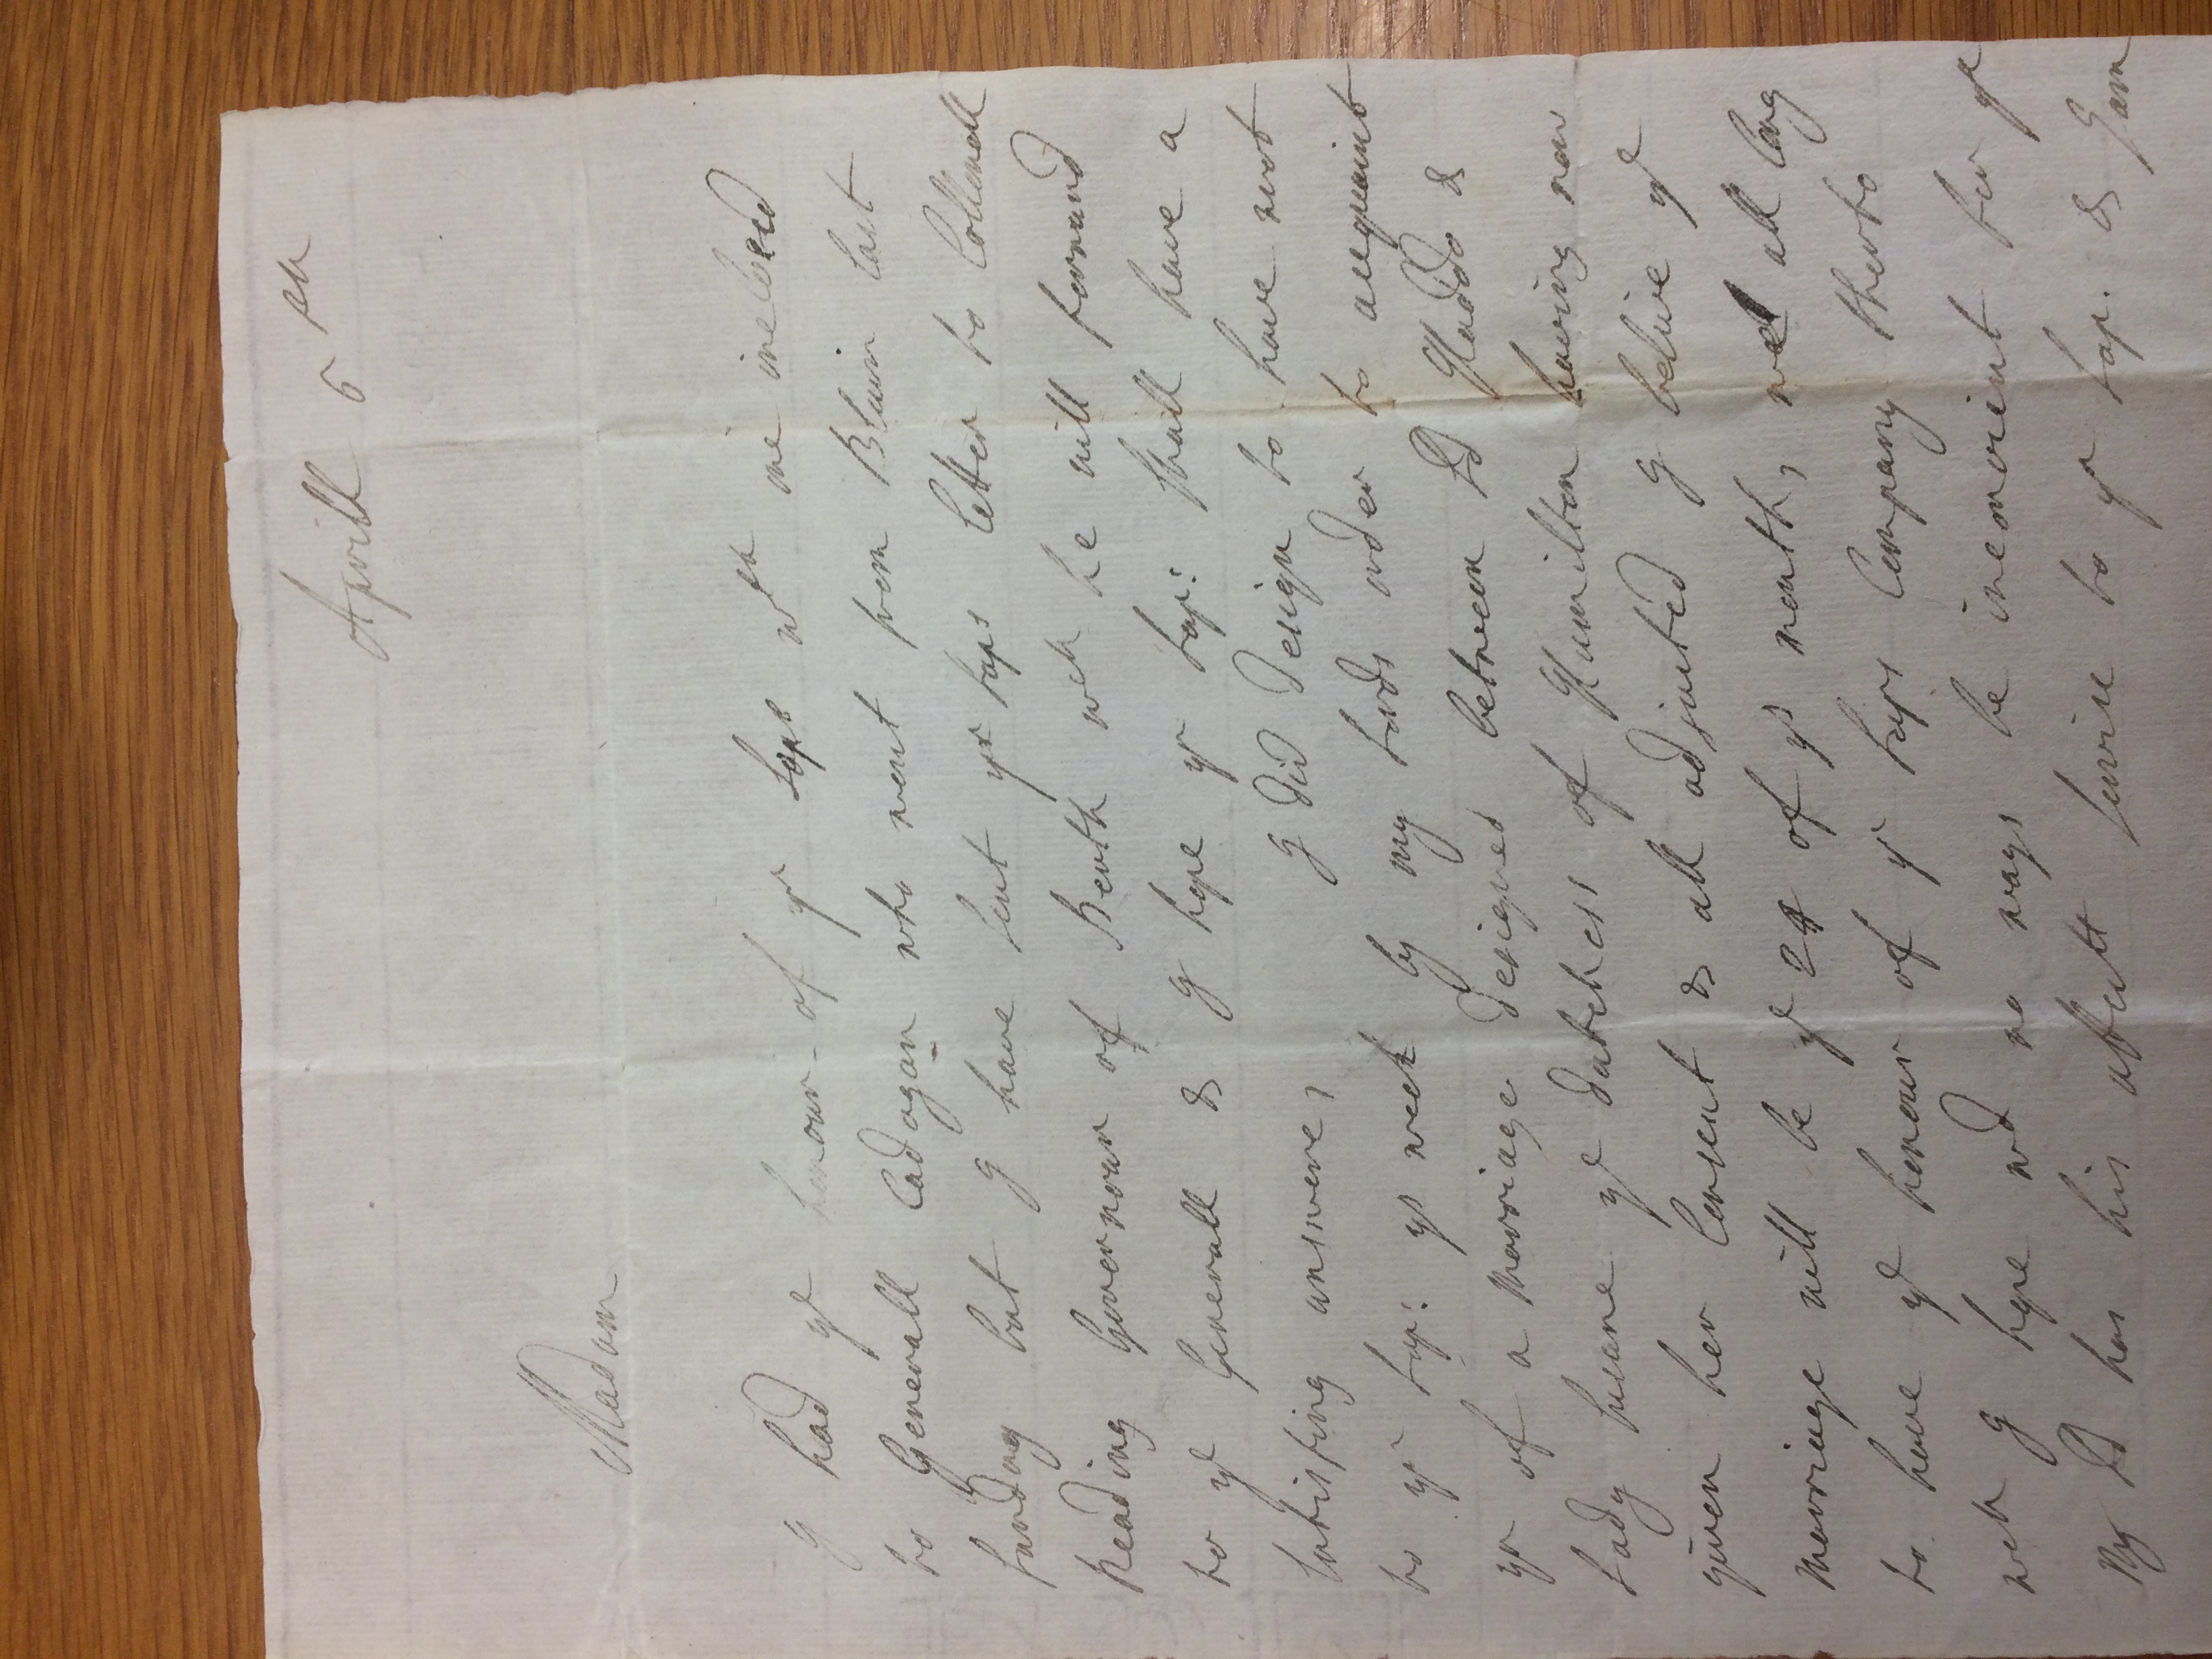 Aprill 6th
Madam
I had ye honour of yr Laps wth one inclosed
to Generall Cadogan who went from Blair last
sunday but I have sent yr Laps letter to Collonell
Reading Governour of Perth wch he will forward
to ye Generall & I hope yr Lap: shall have a
satisfing answere, I did design to have wrot
to yr Lap: ys week by my Lords order to acequaint
yr of a marriage designed between Ld Haddo &
Lady Susane ye dutchess of Hamilton having now
given her Consent & all adjusted I belive ye
marriage will be ye 24 of ys month, we all long
to have ye honour of yr Laps Company therto
wch I hope wd no ways be inconvient for yr
My Ld has his affectt servise to yr Lap. & I am